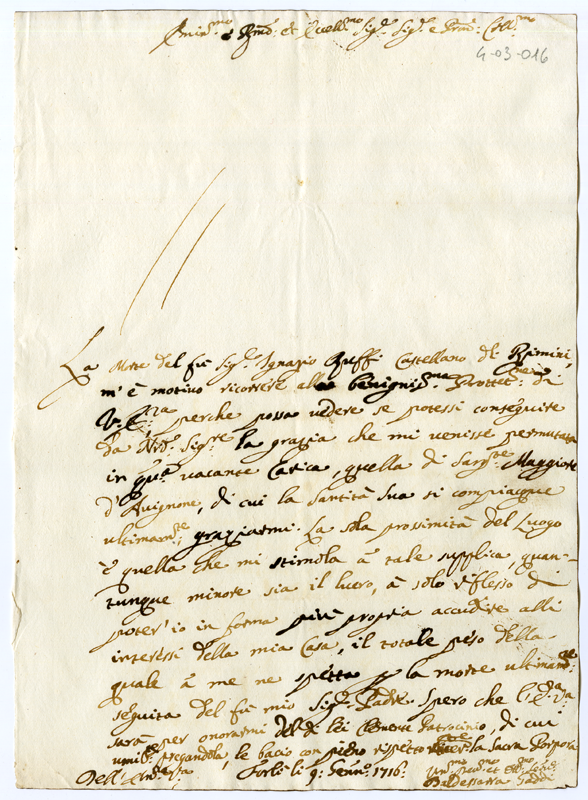 Emin:mo e Rmo: et Eccell:mo Sig:e Sig:e e Prne: Coll:mo
4-03-016
La Morte del fù Sig:e Ignazio Ruffi Castellano di Rimini,
m'è motivo ricorrere alla benignis:ma Prottet:ne di
V: E:za perche possa vedere se potessi conseguire
da N:ro Sig:re la grazia che mi venisse permutata
in q:ta vacante Carica, quella di Sarg:te Maggiore
d'Avignone, di cui la Santità Sua si compiacque
ultimam:te graziarmi. La sola prossimità del Luogo
è quella che mi stimola à tale supplica, quan-
tunque minore sia il lucro, à solo riflesso di
poter'io in forma più propria accudire alli
interessi della mia Casa, il totale peso della
quale à me ne spetta p la morte ultimam:te
seguita del fù mio Sig:e Padre. Spero che l'E:a V:a
sarà per onorarmi del di lei Clemente Patrocinio, di cui
umil:te pregandola, le bacio con pieno rispetto la Sacra Porpora
Dell'Em:za V:a Forlì li 9: Genn:o 1716:
Baldessarra Gaddi